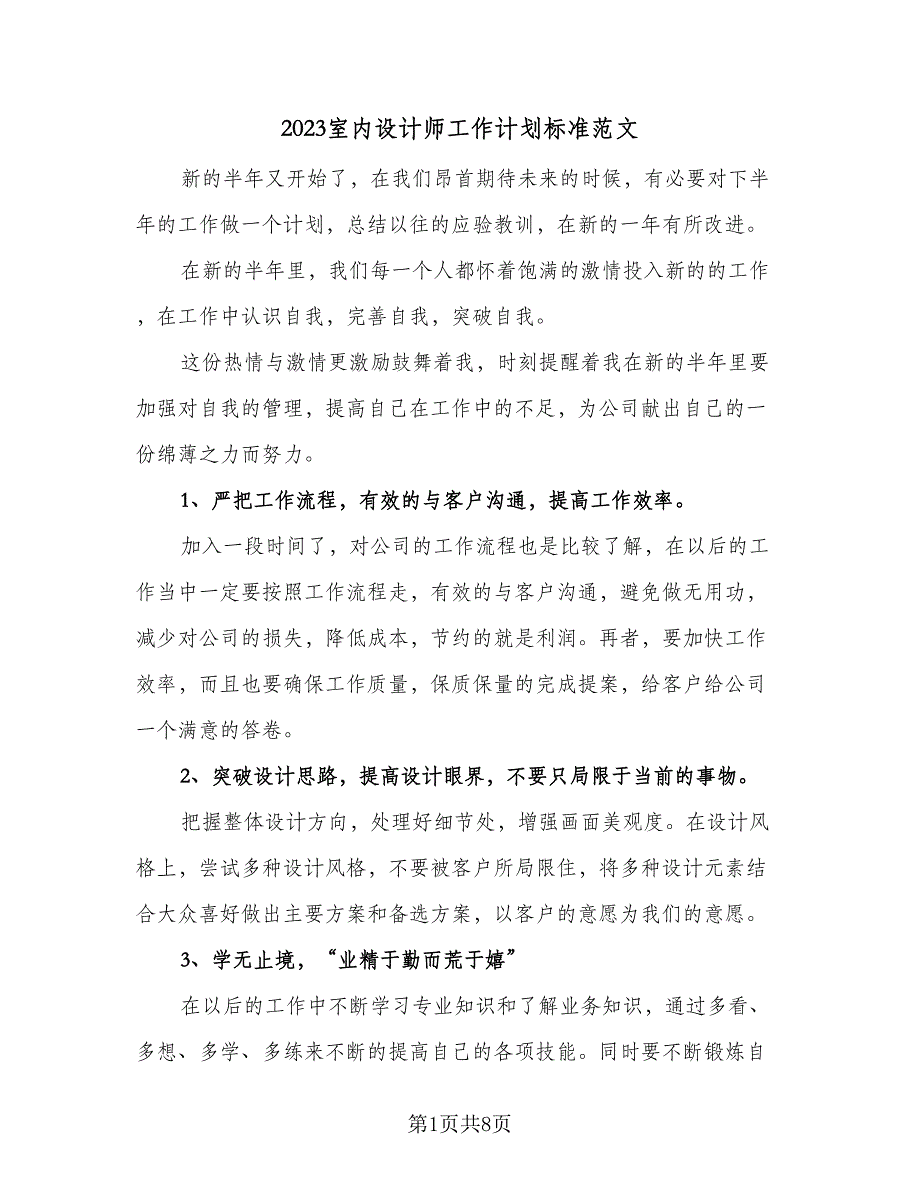 2023室内设计师工作计划标准范文
新的半年又开始了，在我们昂首期待未来的时候，有必要对下半
年的工作做一个计划，总结以往的应验教训，在新的一年有所改进。
在新的半年里，我们每一个人都怀着饱满的激情投入新的的工作
，在工作中认识自我，完善自我，突破自我。
这份热情与激情更激励鼓舞着我，时刻提醒着我在新的半年里要
加强对自我的管理，提高自己在工作中的不足，为公司献出自己的一
份绵薄之力而努力。
1、严把工作流程，有效的与客户沟通，提高工作效率。
加入一段时间了，对公司的工作流程也是比较了解，在以后的工
作当中一定要按照工作流程走，有效的与客户沟通，避免做无用功，
减少对公司的损失，降低成本，节约的就是利润。再者，要加快工作
效率，而且也要确保工作质量，保质保量的完成提案，给客户给公司
一个满意的答卷。
2、突破设计思路，提高设计眼界，不要只局限于当前的事物。
把握整体设计方向，处理好细节处，增强画面美观度。在设计风
格上，尝试多种设计风格，不要被客户所局限住，将多种设计元素结
合大众喜好做出主要方案和备选方案，以客户的意愿为我们的意愿。
3、学无止境，“业精于勤而荒于嬉”
在以后的工作中不断学习专业知识和了解业务知识，通过多看、
多想、多学、多练来不断的提高自己的各项技能。同时要不断锻炼自
第1页共8页